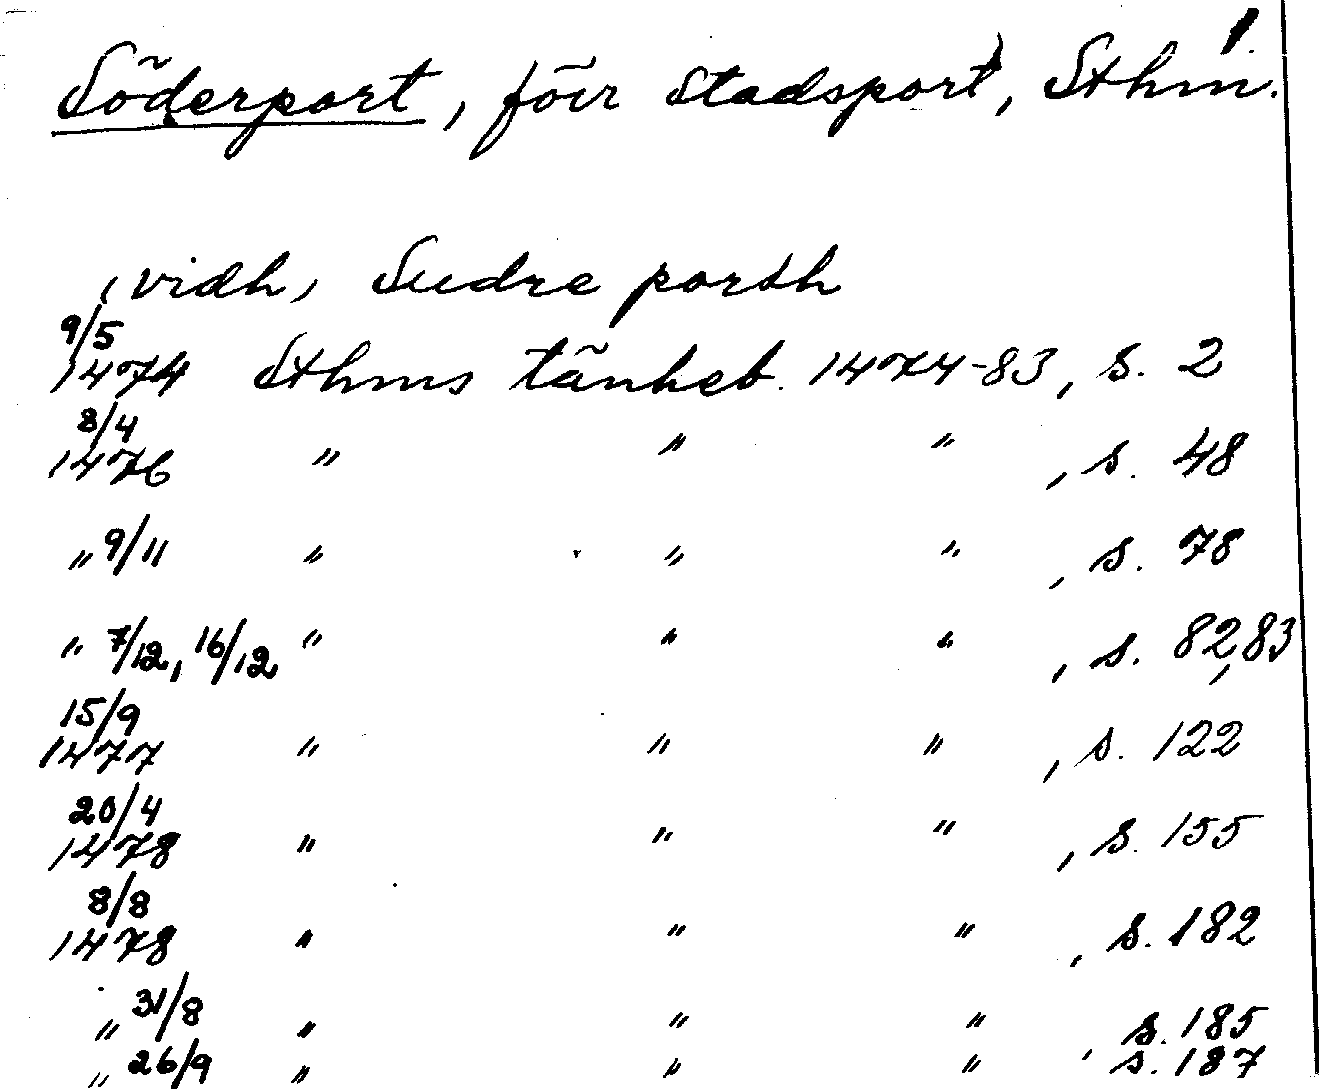 1.
Söderport, förr stadsport, Sthm.
(vidh) Sudre porth
9/5
1474 Sthms tänkeb. 1474-83, s. 2
8/4
1476 " " " , s. 48
" 9/11 " " " , s. 78
" 7/12, 16/12 " " " , s. 82, 83
15/9
1477 " " " , s. 122
20/4
1478 " " " , s. 155
8/8
1478 " " " , s. 182
" 31/8 " " " s. 185
" 26/9 " " " , s. 187